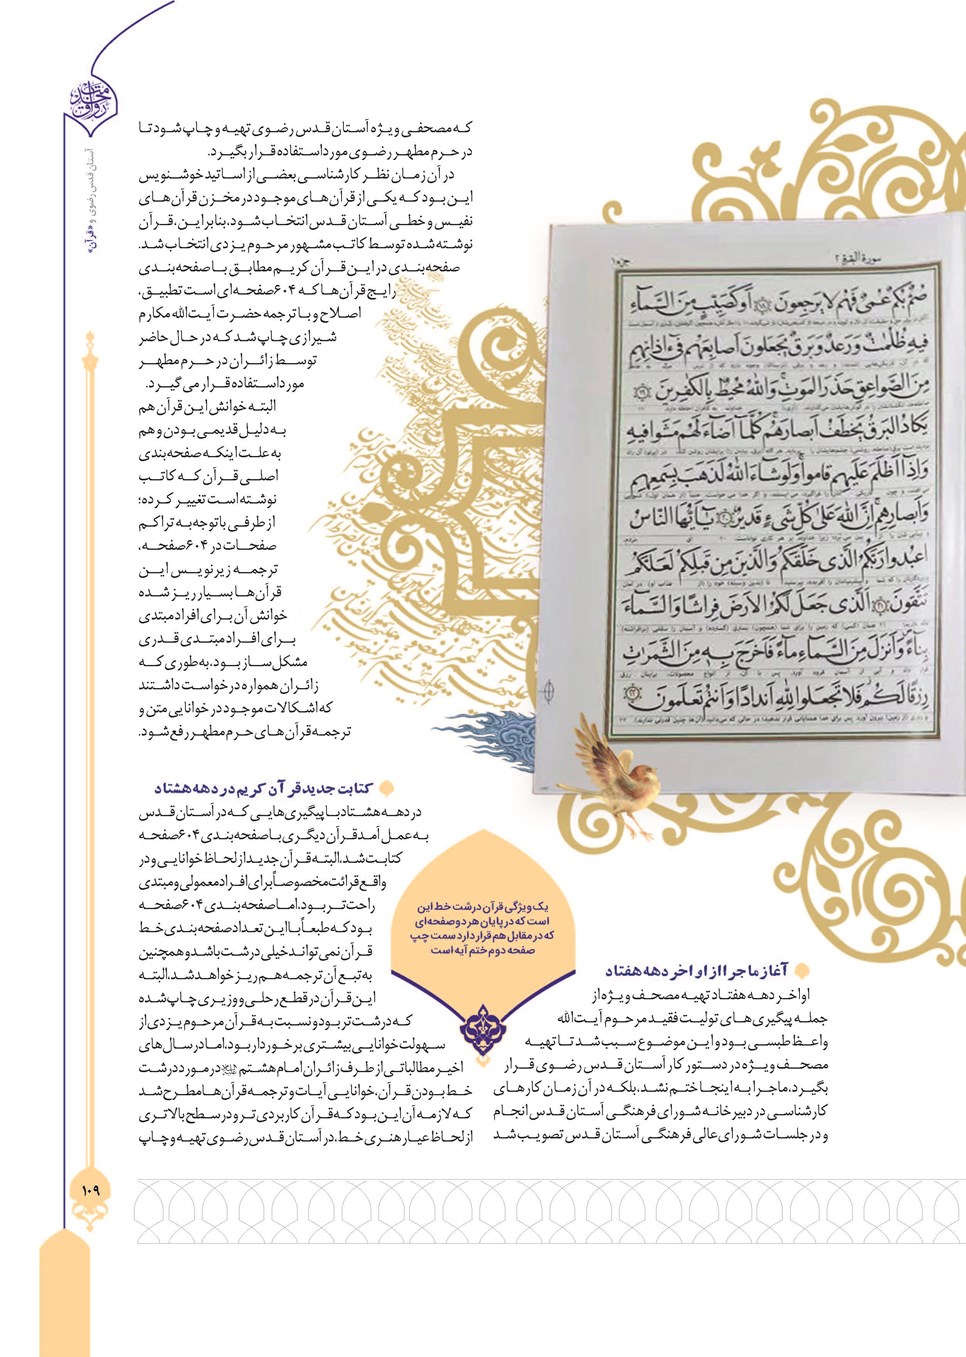 آستان قدس رضوی و «قرآن»
سورة البقرة ٢
جزء ١
صُمٌّ بُكْمٌ عُمْىٌ فَهُمْ لَا يَرْجِعُونَ ١٨ أَوْ كَصَيِّبٍ مِنَ السَّمَاءِ
فِيهِ ظُلُمَاتٌ وَرَعْدٌ وَبَرْقٌ يَجْعَلُونَ أَصَابِعَهُمْ فِى آذَانِهِمْ
مِنَ الصَّوَاعِقِ حَذَرَ الْمَوْتِ وَاللَّهُ مُحِيطٌ بِالْكَافِرِينَ ١٩
يَكَادُ الْبَرْقُ يَخْطَفُ أَبْصَارَهُمْ كُلَّمَا أَضَاءَ لَهُمْ مَشَوْا فِيهِ
وَإِذَا أَظْلَمَ عَلَيْهِمْ قَامُوا وَلَوْ شَاءَ اللَّهُ لَذَهَبَ بِسَمْعِهِمْ
وَأَبْصَارِهِمْ إِنَّ اللَّهَ عَلَى كُلِّ شَىْءٍ قَدِيرٌ ٢٠ يَا أَيُّهَا النَّاسُ
اعْبُدُوا رَبَّكُمُ الَّذِى خَلَقَكُمْ وَالَّذِينَ مِنْ قَبْلِكُمْ لَعَلَّكُمْ
تَتَّقُونَ ٢١ الَّذِى جَعَلَ لَكُمُ الْأَرْضَ فِرَاشًا وَالسَّمَاءَ
بِنَاءً وَأَنْزَلَ مِنَ السَّمَاءِ مَاءً فَأَخْرَجَ بِهِ مِنَ الثَّمَرَاتِ
رِزْقًا لَكُمْ فَلَا تَجْعَلُوا لِلَّهِ أَنْدَادًا وَأَنْتُمْ تَعْلَمُونَ ٢٢
آغاز ماجرا از اواخر دهه هفتاد
اواخر دهه هفتاد تهیه مصحف ویژه از
جمله پیگیری‌های تولیت فقید مرحوم آیت‌الله
واعظ طبسی بود و این موضوع سبب شد تا تهیه
مصحف ویژه در دستور کار آستان قدس رضوی قرار
بگیرد، ماجرا به اینجا ختم نشد، بلکه در آن زمان کارهای
کارشناسی در دبیرخانه شورای فرهنگی آستان قدس انجام
و در جلسات شورای عالی فرهنگی آستان قدس تصویب شد
که مصحفی ویژه آستان قدس رضوی تهیه و چاپ شود تا
در حرم مطهر رضوی مورد استفاده قرار بگیرد.
در آن زمان نظر کارشناسی بعضی از اساتید خوشنویس
این بود که یکی از قرآن‌های موجود در مخزن قرآن‌های
نفیس و خطی آستان قدس انتخاب شود، بنابراین، قرآن
نوشته شده توسط کاتب مشهور مرحوم یزدی انتخاب شد.
صفحه‌بندی در این قرآن کریم مطابق با صفحه‌بندی
رایج قرآن‌ها که ۶۰۴ صفحه‌ای است تطبیق،
اصلاح و با ترجمه حضرت آیت‌الله مکارم
شیرازی چاپ شد که در حال حاضر
توسط زائران در حرم مطهر
مورد استفاده قرار می‌گیرد.
البته خوانش این قرآن هم
به دلیل قدیمی بودن و هم
به علت اینکه صفحه‌بندی
اصلی قرآن که کاتب
نوشته است تغییر کرده؛
از طرفی با توجه به تراکم
صفحات در ۶۰۴ صفحه،
ترجمه زیرنویس این
قرآن‌ها بسیار ریز شده
خوانش آن برای افراد مبتدی
برای افراد مبتدی قدری
مشکل‌ساز بود، به‌طوری که
زائران همواره درخواست داشتند
که اشکالات موجود در خوانایی متن و
ترجمه قرآن‌های حرم مطهر رفع شود.
کتابت جدید قرآن کریم در دهه هشتاد
در دهه هشتاد با پیگیری‌هایی که در آستان قدس
به عمل آمد قرآن دیگری با صفحه‌بندی ۶۰۴ صفحه
کتابت شد، البته قرآن جدید از لحاظ خوانایی و در
واقع قرائت مخصوصاً برای افراد معمولی و مبتدی
راحت‌تر بود، اما صفحه‌بندی ۶۰۴ صفحه
بود که طبعاً با این تعداد صفحه‌بندی خط
قرآن نمی‌تواند خیلی درشت باشد و همچنین
به تبع آن ترجمه هم ریز خواهد شد، البته
این قرآن در قطع رحلی و وزیری چاپ شده
که درشت‌تر بود و نسبت به قرآن مرحوم یزدی از
سهولت خوانایی بیشتری برخوردار بود، اما در سال‌های
اخیر مطالباتی از طرف زائران امام هشتم در مورد درشت
خط بودن قرآن، خوانایی آیات و ترجمه قرآن‌ها مطرح شد
که لازمه آن این بود که قرآن کاربردی‌تر و در سطح بالاتری
از لحاظ عیار هنری خط، در آستان قدس رضوی تهیه و چاپ
یک ویژگی قرآن درشت خط این
است که در پایان هر دو صفحه‌ای
که در مقابل هم قرار دارد سمت چپ
صفحه دوم ختم آیه است
۱۰۹